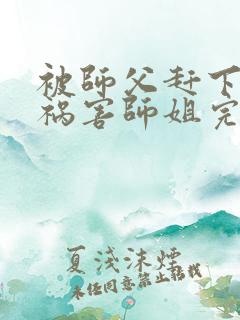 被師父赶下
祸害師姐完
夏淺沫煙
未经同意禁止转载